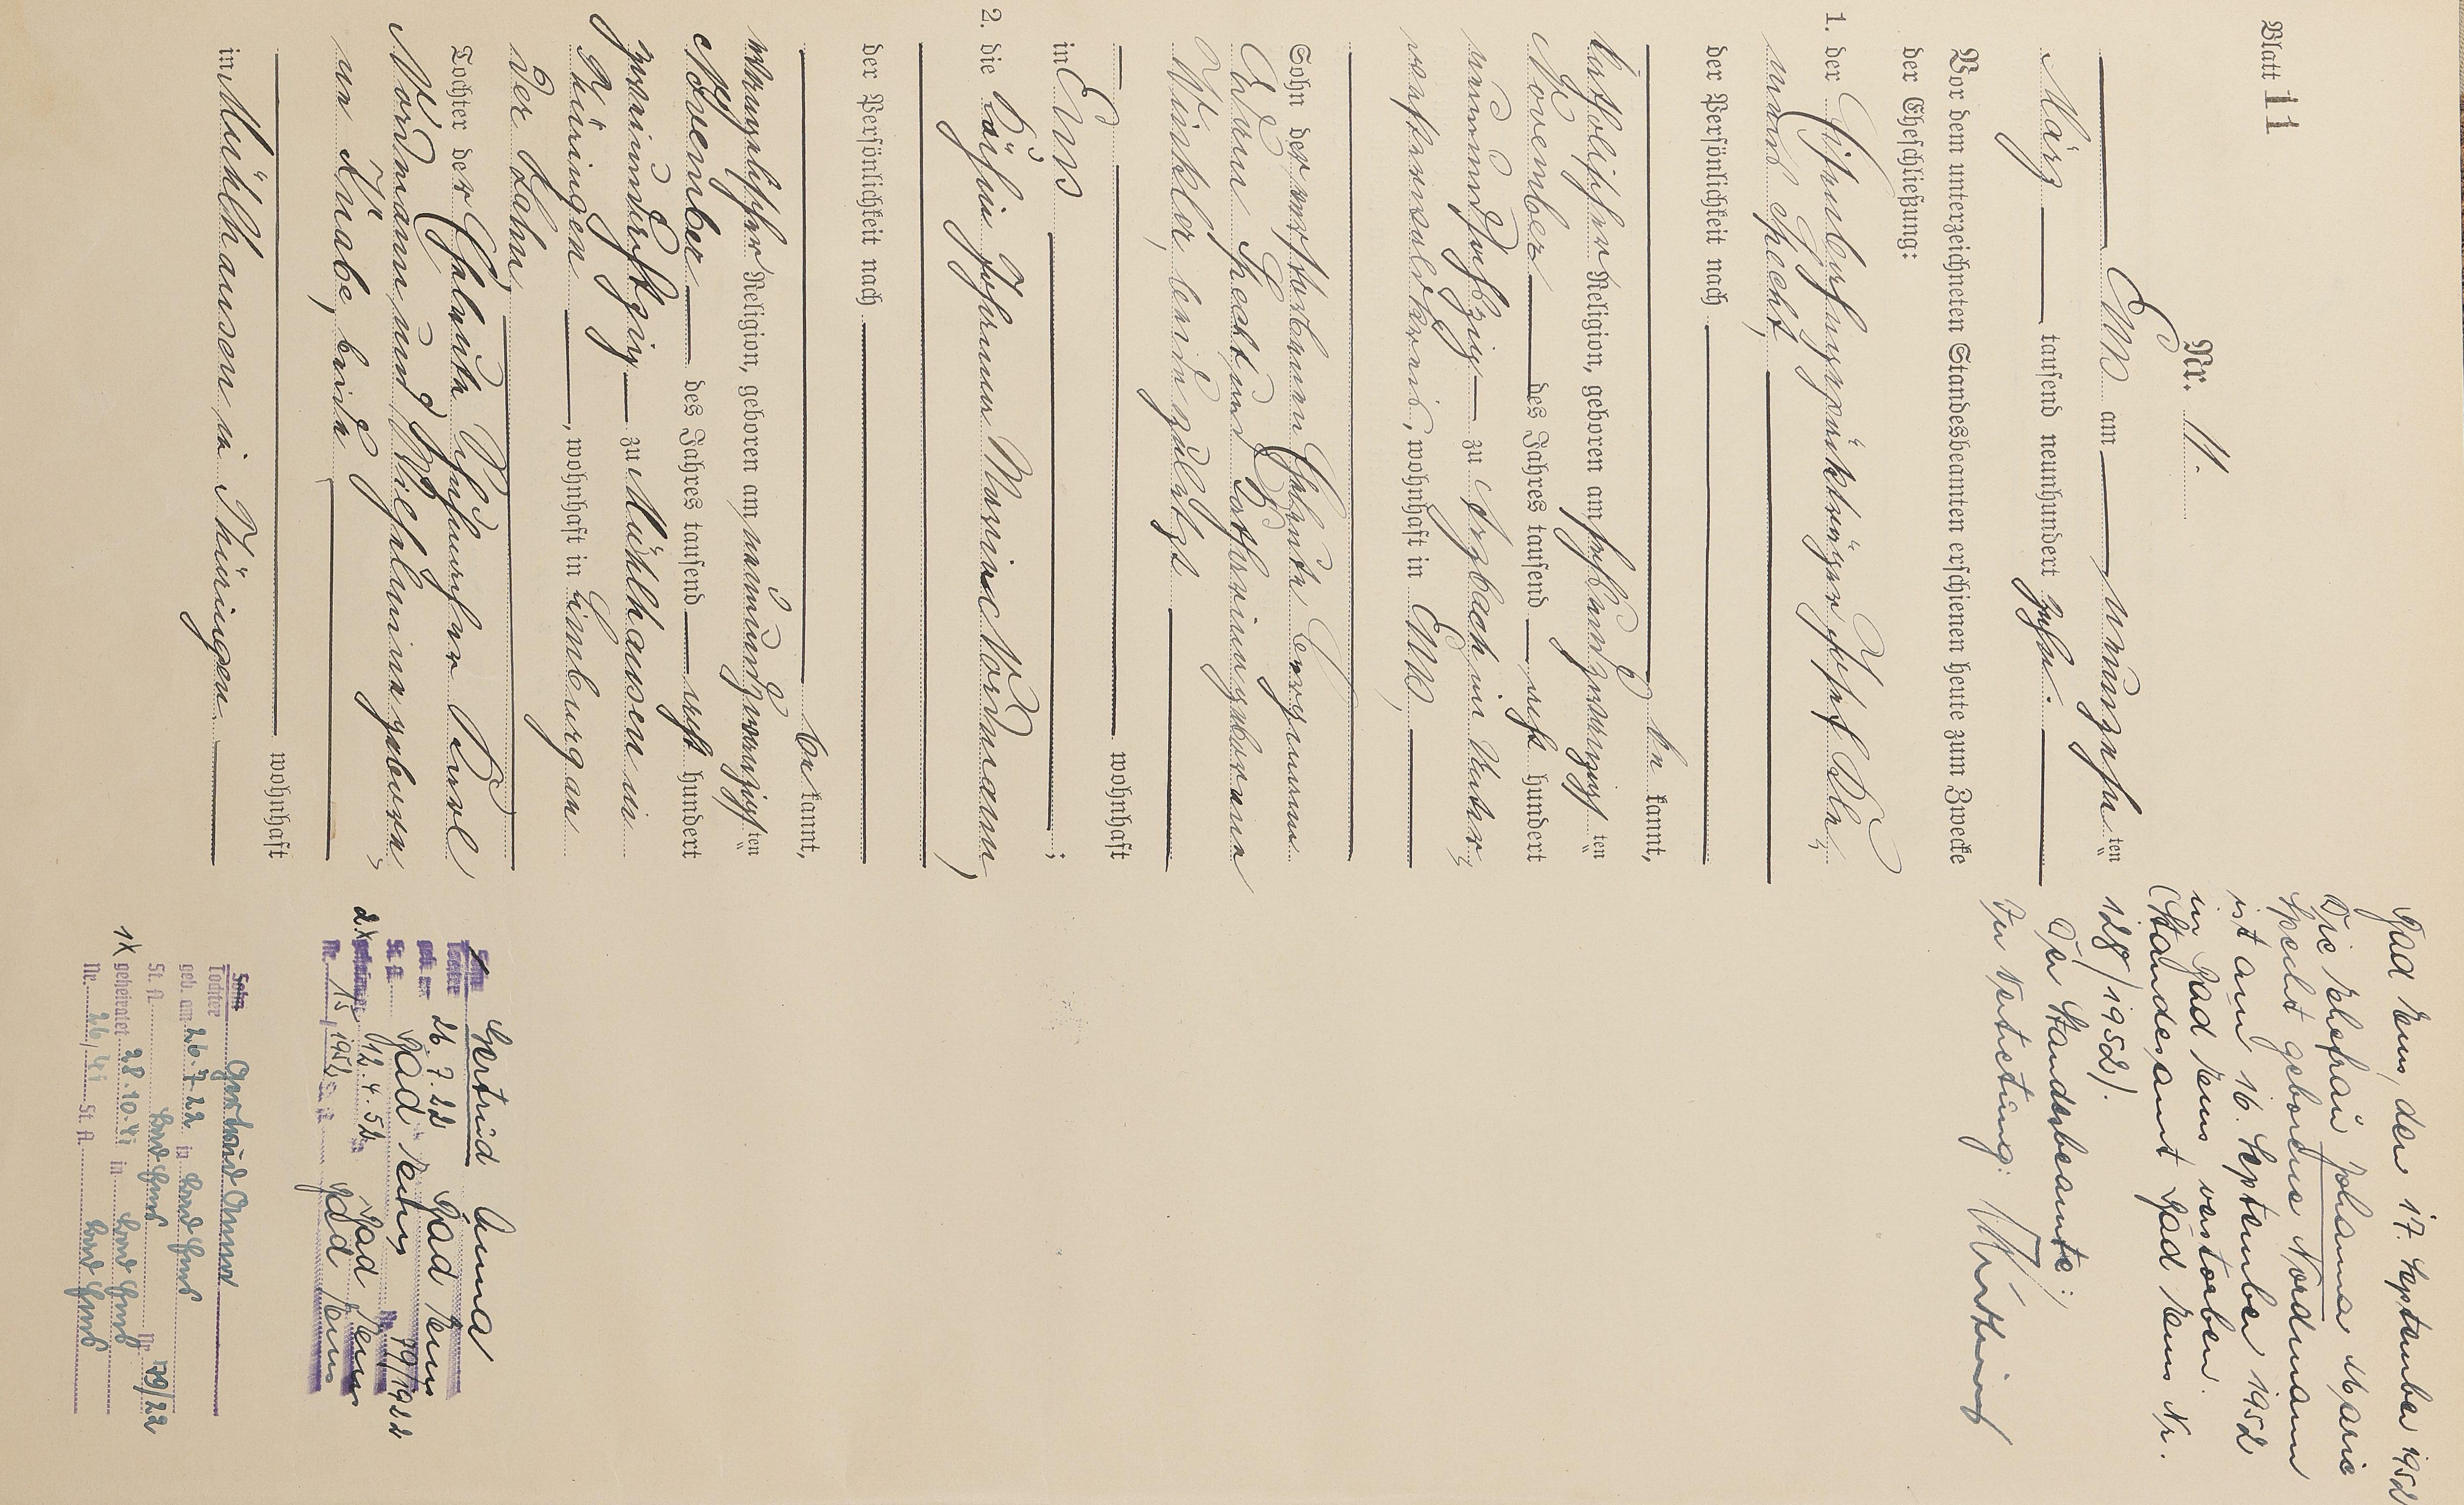 Blatt 11
Nr. 11.
Ems am neunzehnten
März tausend neunhundert zehn.
Vor dem unterzeichneten Standesbeamten erschienen heute zum Zwecke
der Eheschließung:
1. der Eisenbahn Joseph
Specht,
der Persönlichkeit nach
be kannt,
katholischer Religion, geboren am sechsundzwanzigsten
November des Jahres tausend acht hundert
neunundachtzig zu Arzbach im Unter,
westerwaldkreis, wohnhaft in Ems,
Sohn der verstorbenen Eheleute Bergmann
Specht und Katharina geborene
Winkler, beide zuletzt
wohnhaft
in Ems ;
2. die Köchin Johanna Marie Nordmann,
der Persönlichkeit nach
be kannt,
evangelischer Religion, geboren am neunundzwanzigsten
November des Jahres tausend acht hundert
zu Mühlhausen in
Thüringen, wohnhaft in Limburg an
der Lahn,
Tochter der Eheleute Karl
Nordmann und Wilhelmine geborene
Knabe, beide
wohnhaft
in Mühlhausen in Thüringen.
Bad Ems, den 17. September 1952
Die Ehefrau Johanna Marie
Specht geborene Nordmann
ist am 16. September 1952
in Bad Ems verstorben.
(Standesamt Bad Ems Nr.
128/1952).
Der Standesbeamte:
In Vertretung:
Sohn
Tochter Gertrud Anna
geb. am 26.7.22 Bad Ems
St. A. Bad Ems Nr. 79/1922
2.X geheiratet 12.4.52 Bad Ems
Nr. 15/1952 St. A. Bad Ems
Sohn
Tochter Gertrud Anna
geb. am 26.7.22 in Bad Ems
St. A. Bad Ems Nr. 79/22
1X geheiratet 28.10.41 in Bad Ems
Nr. St. A. Bad Ems